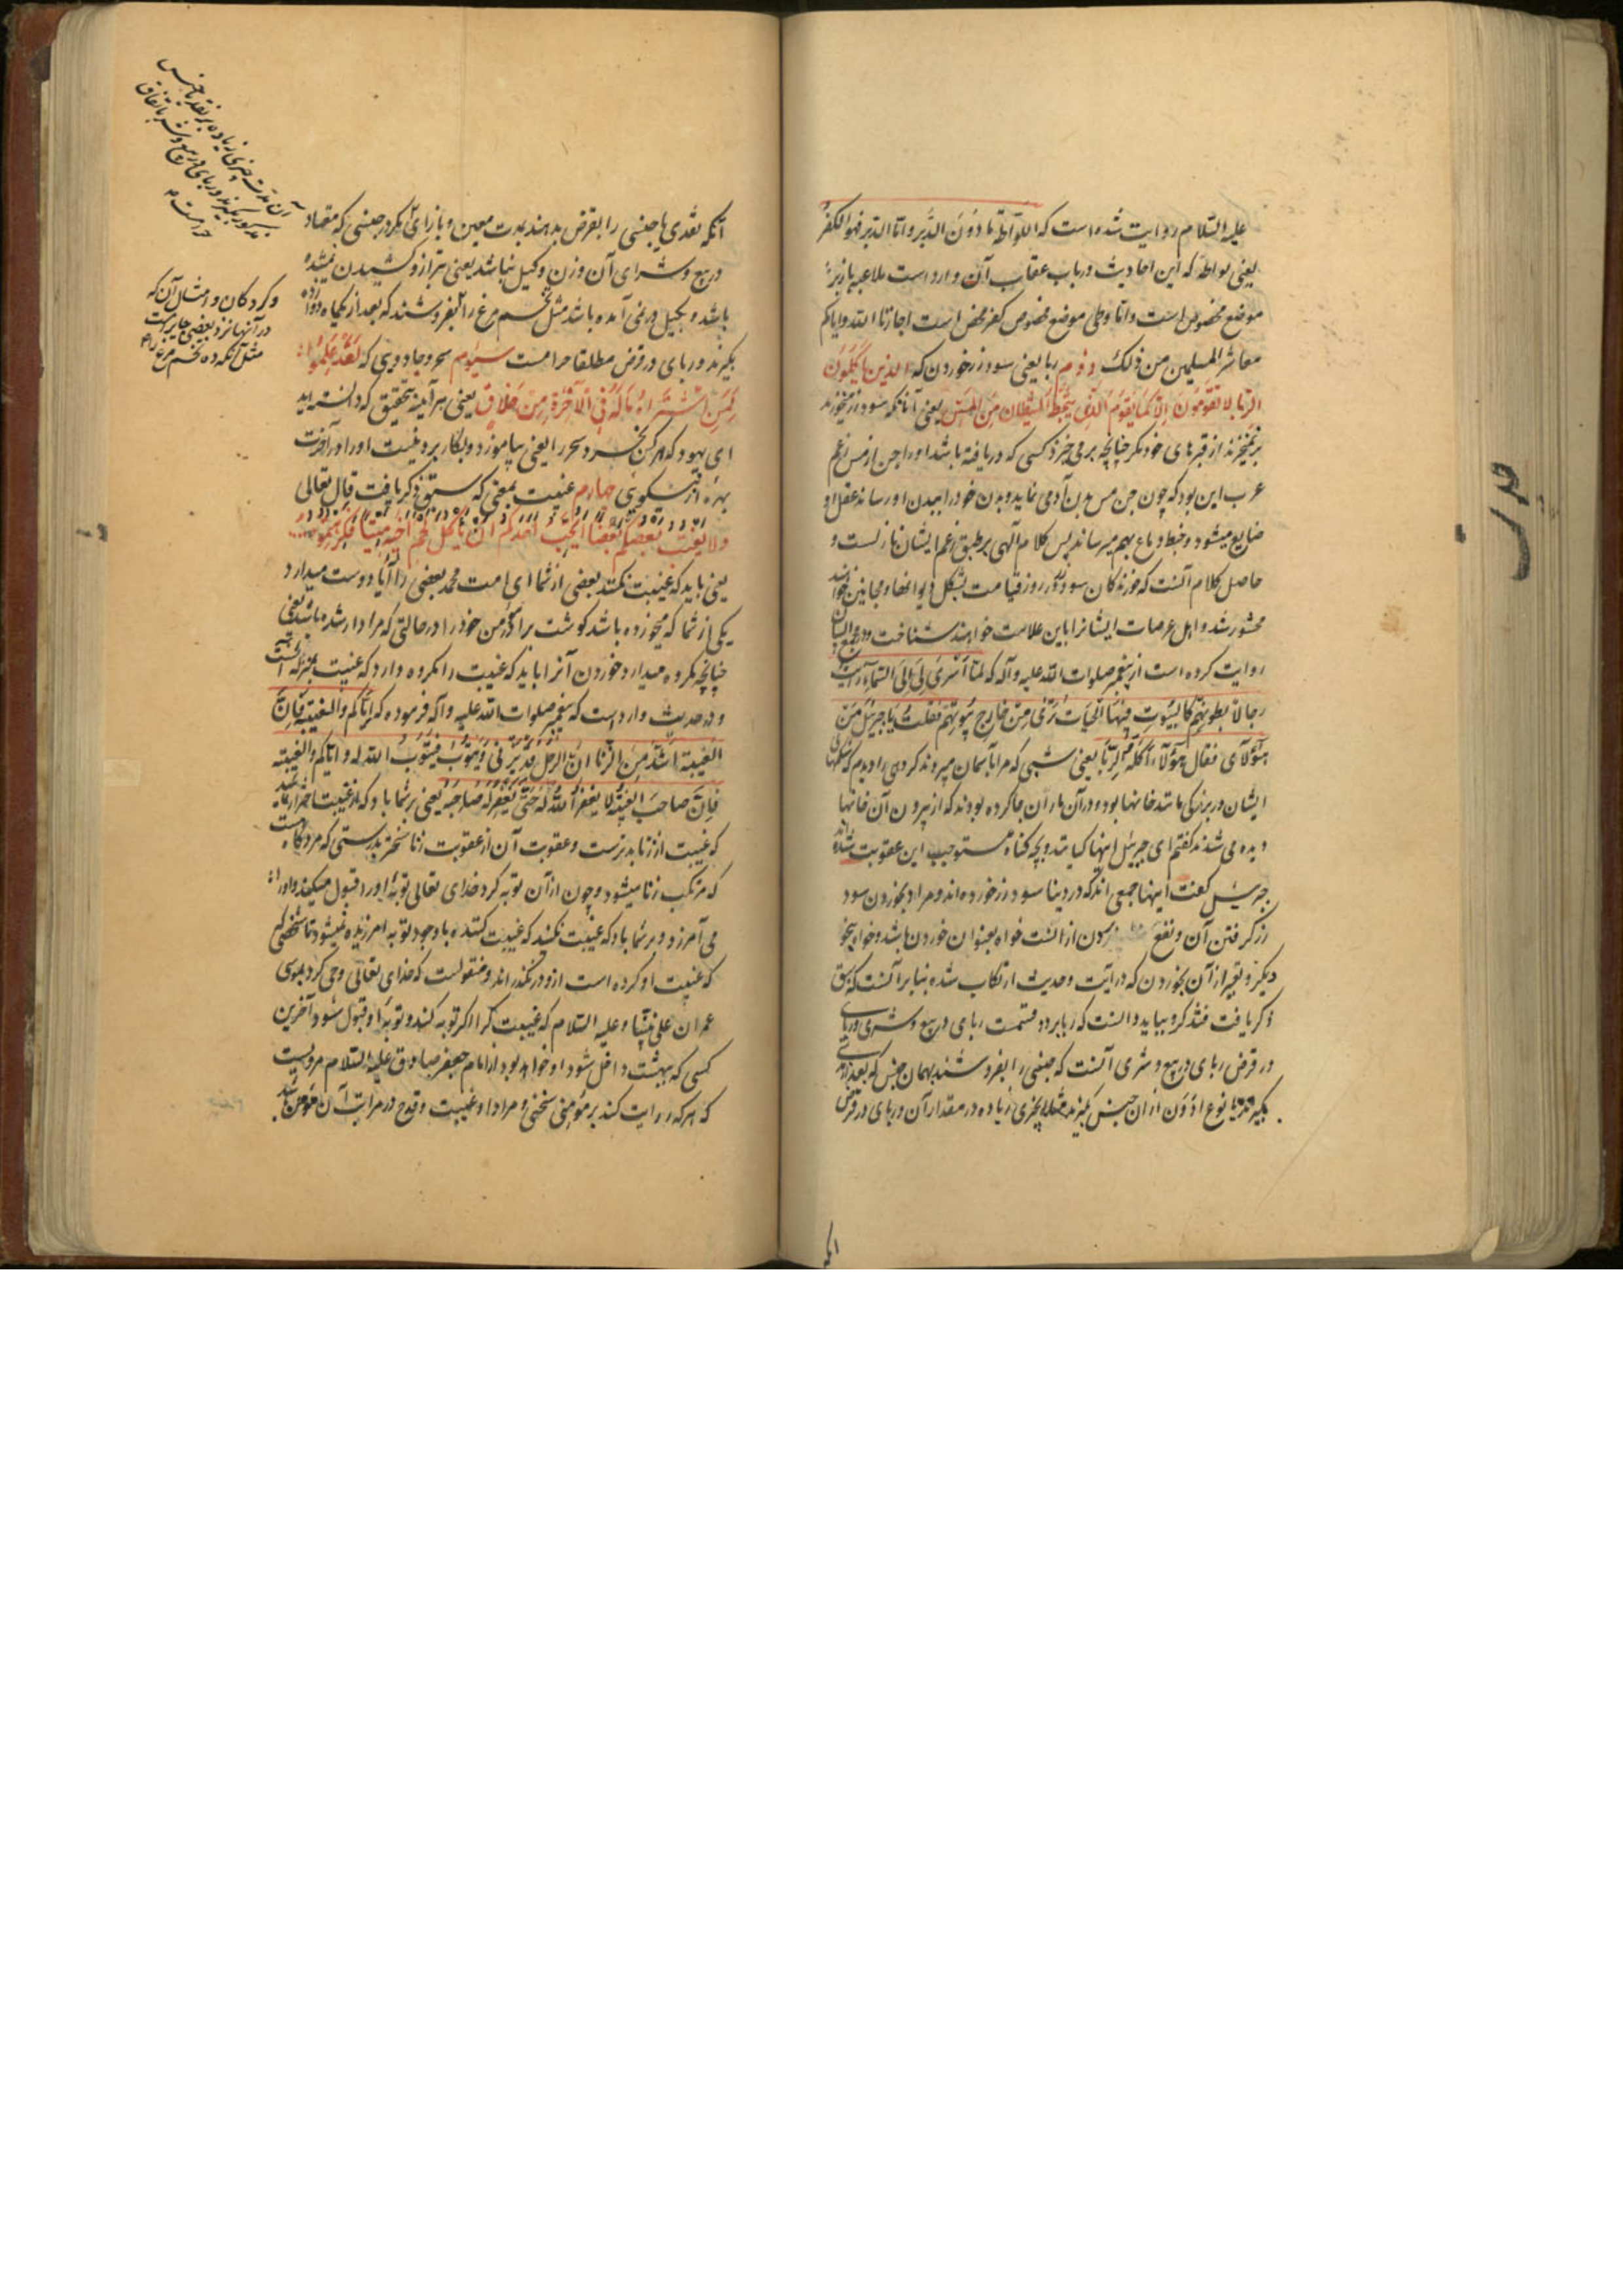 علیه السّلام روایت شده است که اللّواطة ما دُوُنَ الدُّبُر و امّا الدّبر فهو الکفرُ
یعنی لواطهٔ که این احادیث در باب عقاب آن وارد است ملاعبه با زبر
موضع مخصوص است و امّا وطی موضع مخصوص کفر محض است اجازنا الله و ایاکم
معاشر المسلمین من ذلک دوم ربا یعنی سود زر خوردن که الذین یأکلون
الرّبا لا یقومون الّا کما یقوم الّذی یتخبّطه الشیطان من المسّ یعنی آنانکه سود زر میخورند
برنمیخیزند از قبرهای خود مگر چنانچه برمی خیزد کسی که دریافته باشد او را جن از مس زعم
عرب این بود که چون جن مس بدن آدمی نماید و بدن خود را ببدن او رساند عقل او
ضایع میشود و خبط دماغ بهم میرساند پس کلام آلهی بر طبق زعم ایشان نازلست و
حاصل کلام آنست که خورندکان سود زر روز قیامت بشکل دیوانها و مجانین خواهند
محشور شد و اهل عرصات ایشانرا باین علامت خواهند شناخت و در مجمع البیان
روایت کرده است از پیغمبر صلوات الله علیه و آله که لمّا اُسْرِیَ بی اِلَی السّماءِ رأیت
رجالاً بطونهم کالبیُوتِ فیها الحیّات تُرَی مِن خارج بُیُوتهم فقلتُ یا جبرئیل مَن
هؤلآء فقال هؤلآء اَکَلَة الرّبا یعنی شبی که مرا بآسمان میبردند کردهی را دیدم که شکمهای
ایشان در بزرکی مانند خانها بود و در آن ماران جا کرده بودند که از بیرون آن خانها
دیده می شدند کفتم ای جبرئیل اینها کیانند و بچه کناه مستوجب این عقوبت شده اند
جبرئیل کفت اینها جمعی اند که در دینا سود زر خورده اند و مراد بخوردن سود
زر کرفتن آن و نفع بردن از انست خواه بعنوان خوردن باشد و خواه بنحو
دیکر و تعبیر از آن بخوردن که در آیت و حدیث ارتکاب شده بنا بر آنست که سبق
ذکر یافت فتذکر و بباید دانست که ربا بر دو قسمست ربای در بیع و شری و ربای
در قرض ربای در بیع و شری آنست که جنسی را بفروشند بهمان جنس که بعد از مدتی
بکیرند یا نوع ادون از ان جنس بکیرند مثلا بچیزی زیاده در مقدار آن و ربای در قرض
انکه
آنکه نقدی یا جنسی را بقرض بدهند بمدت معین و بازای آن مکرر جنسی که معتاد
در بیع و شرای آن وزن و کیل نباشد یعنی بترازو کشیدن نمیشده
باشد و بکیل درنمی آمده باشد مثل تخم مرغ را بفروشند که بعد از یکماه دوازده
بکیرند و ربای در قرض مطلقا حرامست سیوم سحر و جادویی که لَقَدْ عَلِمُوا
لَمَنِ اشْتَراهُ مالَهُ فِی الْآخِرَةِ مِنْ خَلاقٍ یعنی هر آینه بتحقیق که دانسته اید
ای یهود که هر کس بخرد سحر را یعنی بیاموزد و بکار برد نیست او را در آخرت
بهرهٔ از نیکویی چهارم غیبت بمعنی که سبق ذکر یافت قال تعالی
وَلا یَغْتَبْ بَعْضُکُمْ بَعْضاً أَیُحِبُّ أَحَدُکُمْ أَنْ یَأْکُلَ لَحْمَ أَخِیهِ مَیْتاً فَکَرِهْتُمُوهُ
یعنی باید که غیبت نکنند بعضی از شما ای امت محمد بعضی را آیا دوست میدارد
یکی از شما که میخورده باشد کوشت برادر مؤمن خود را در حالتی که مردار شده باشد یعنی
چنانچه مکروه میدارد خوردن آنرا باید که غیبت را مکروه دارد که غیبت بمنزله آنست
و در حدیث وارد است که پیغمبر صلوات الله علیه و آله فرموده که ایّاکم و الغیبة فانّ
الغیبة اشدّ مِنَ الزّنا انّ الرجل قد یزنی و یتوبُ فیتوبُ الله له و ایاکم و الغیبة
فانّ صاحب الغیبة لا یغفر الله له حتّی یغفر له صاحبه یعنی بر شما باد که از غیبت احتراز نمائید
که غیبت از زنا بدترست و عقوبت آن از عقوبت زنا سختتر بدرستی که مرد کاه است
که مرتکب زنا میشود و چون از آن توبه کرد خدای تعالی توبهٔ او را قبول میکند و او را
می آمرزد و بر شما باد که غیبت نکنید که غیبت کننده با وجود توبه آمرزیده نمیشود تا شخصی
که غیبت او کرده است ازو درنکذراند و منقولست که خدای تعالی وحی کرد بموسی
عمران علی نبینا و علیه السلام که غیبت کر اکر توبه کند و توبهٔ او قبول شود آخرین
کسی که ببهشت داخل شود او خواهد بود از امام جعفر صادق علیه السلام مرویست
که هر که روایت کند بر مؤمنی سخنی و مراد او غیبت و قدح در مراتب آن مؤمن باشد
آن مدت چیزی زیاده بر نقد یا جنس
مذکور بکیرند و ربای در بیع و شری باتفاق
حرامست
و کردکان و امثال آن که
در آنها نزد بعضی جایز است
مثل آنکه ده تخم مرغ را